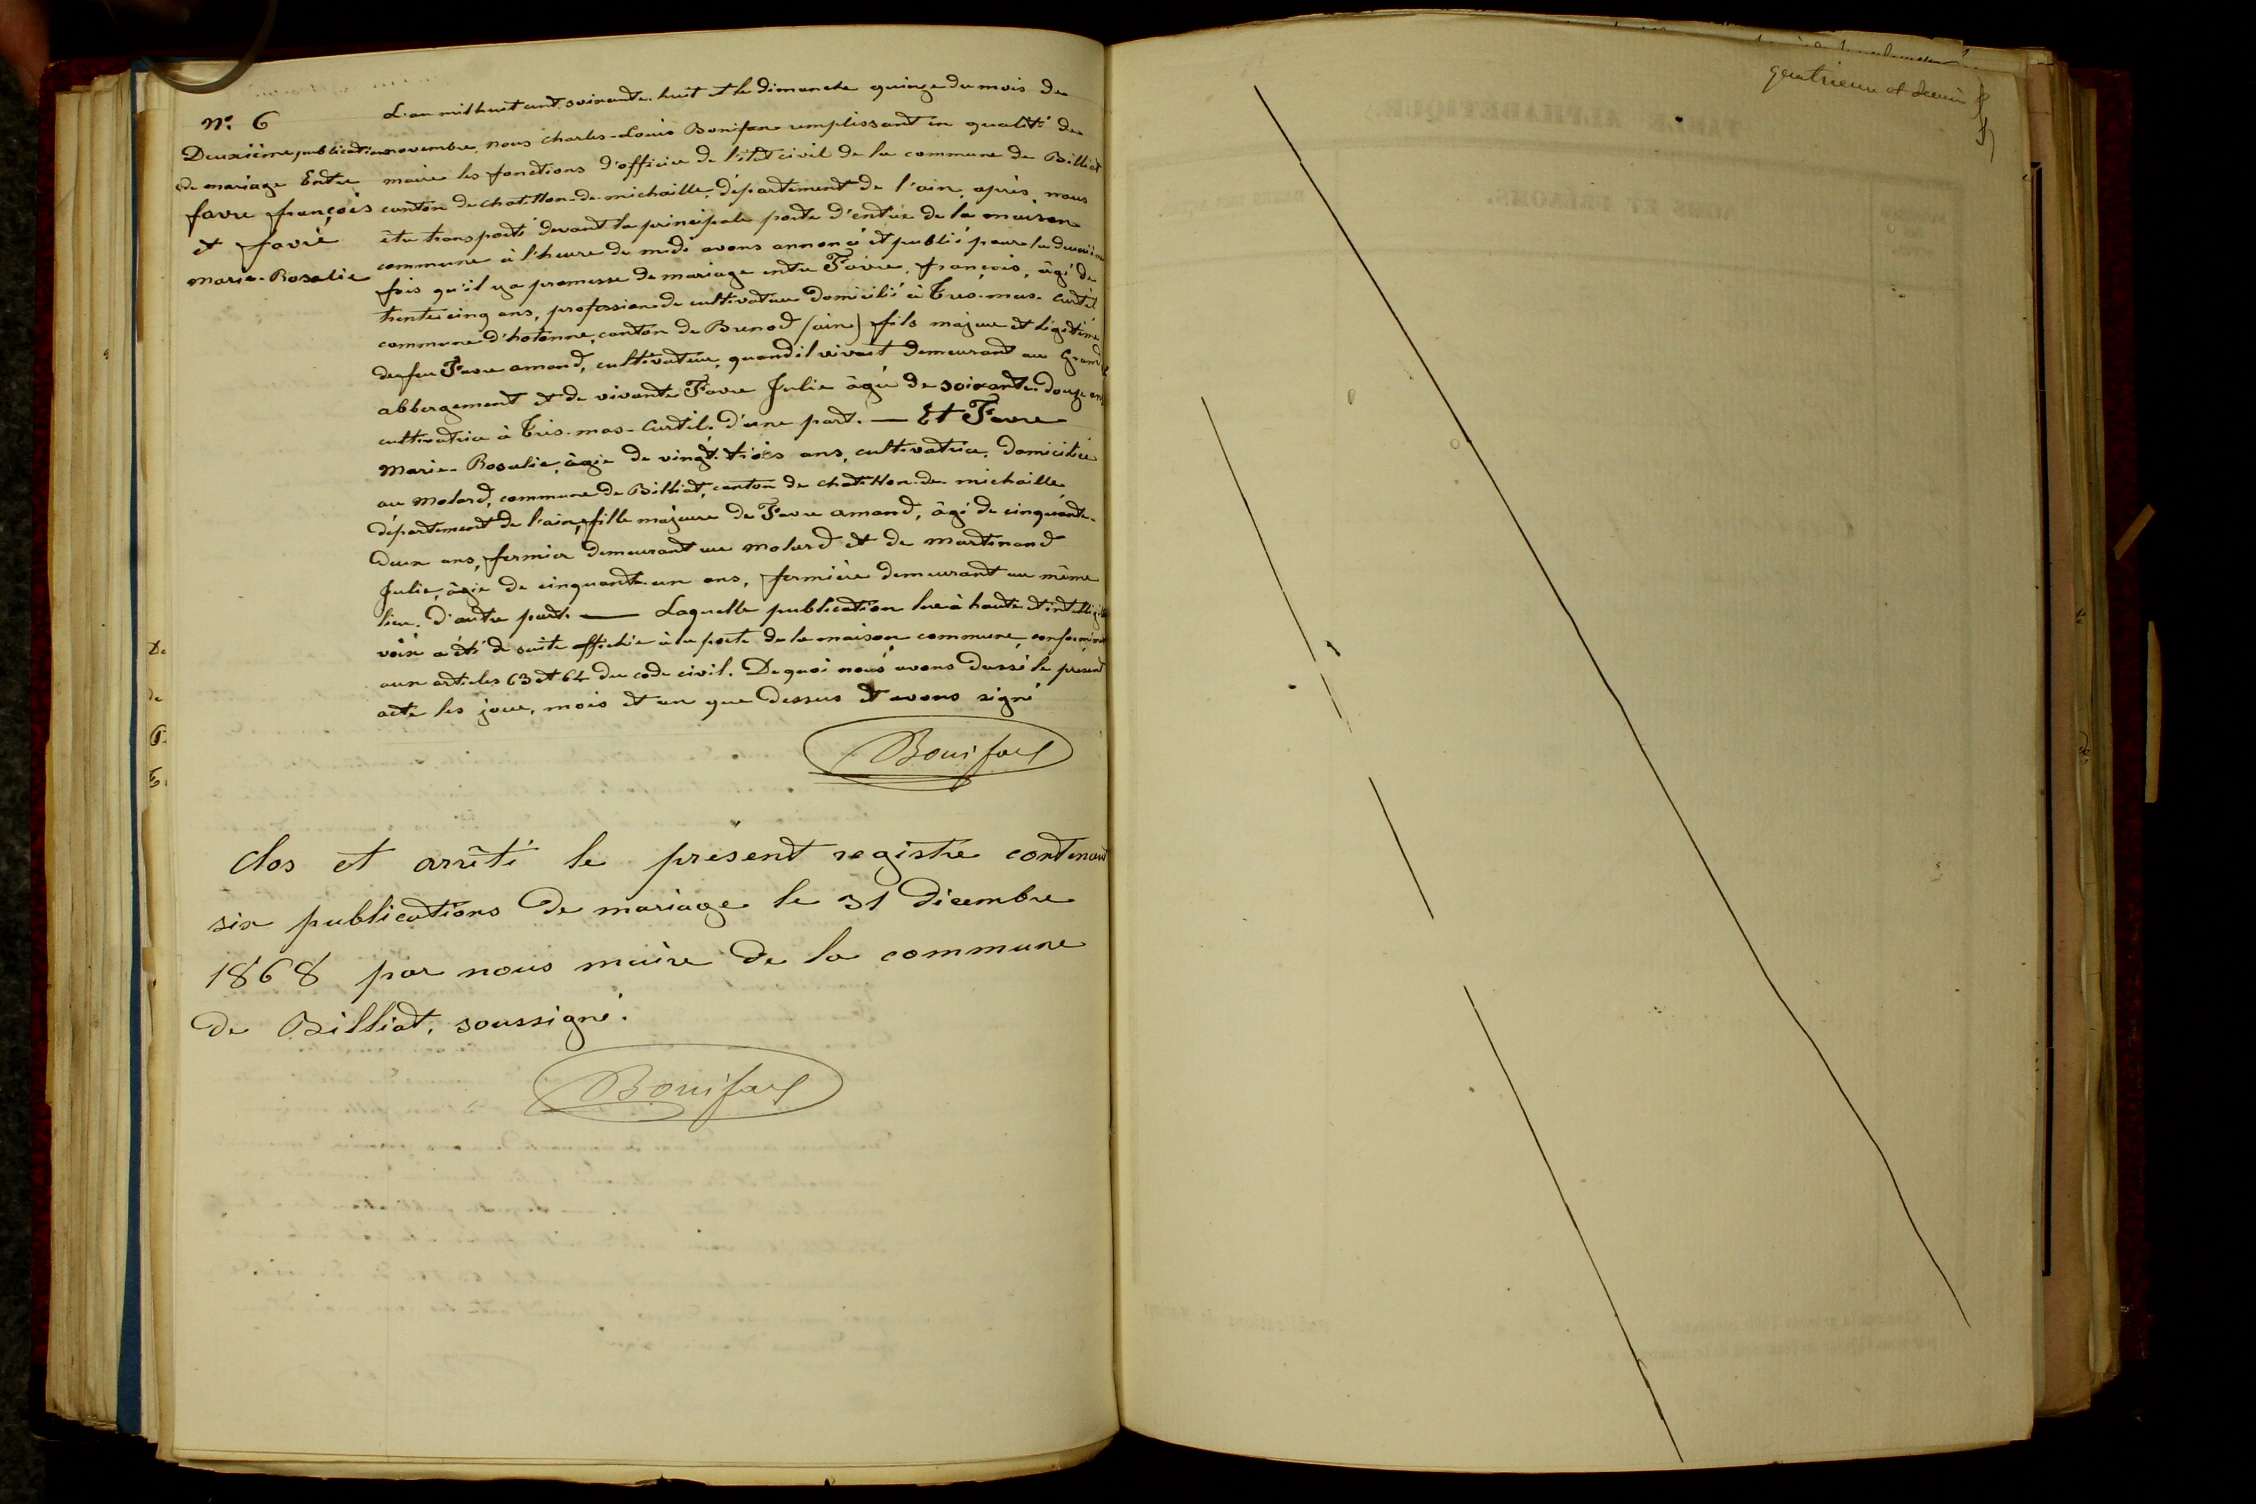 N° 6
Deuxième publication
de mariage Entre
favre françois
et favre
marie-Rosalie
L'an mil huit cent soixante-huit et le dimanche quinze du mois de
novembre, nous charles-Louis Bonifax remplissant en qualité de
maire les fonctions d'officier de l'état civil de la commune de Billiat
canton de chatillon-de-michaille, département de l'ain, après nous
être transporté devant la principale porte d'entrée de la maison
commune à l'heure de midi avons annoncé et publié pour la deuxième
fois qu'il y a promesse de mariage entre Favre, françois, âgé de
trente cinq ans, profession de cultivateur domicilié à Tres-mas-Curtil
commune d'hotonne, canton de Brenod (ain) fils majeur et légitime
de feu Favre amand, cultivateur, quand il vivait demeurant au Grand
abbergement et de vivante Favre Julie âgée de soixante-douze ans
cultivatrice à Très-mas-Curtil. d'une part. — Et Favre
Marie-Rosalie, âgée de vingt-trois ans, cultivatrice, domiciliée
au Molard, commune de Billiat, canton de chatillon-de-michaille
département de l'ain, fille majeure de Favre amand, âgé de cinquante-
deux ans, fermier demeurant au molard et de martinand
Julie, âgée de cinquante-un ans, fermière demeurant au même
lieu. d'autre part. — Laquelle publication lue à haute et intelligible
voix a été de suite affichée à la porte de la maison commune, conformément
aux articles 63 et 64 du code civil. De quoi nous avons dressé le présent
acte les jour, mois et an que dessus et avons signé
Bonifax
Clos et arrêté le présent registre contenant
six publications de mariage le 31 décembre
1868 par nous maire de la commune
de Billiat, soussigné.
Bonifax
quatrieme et dernier